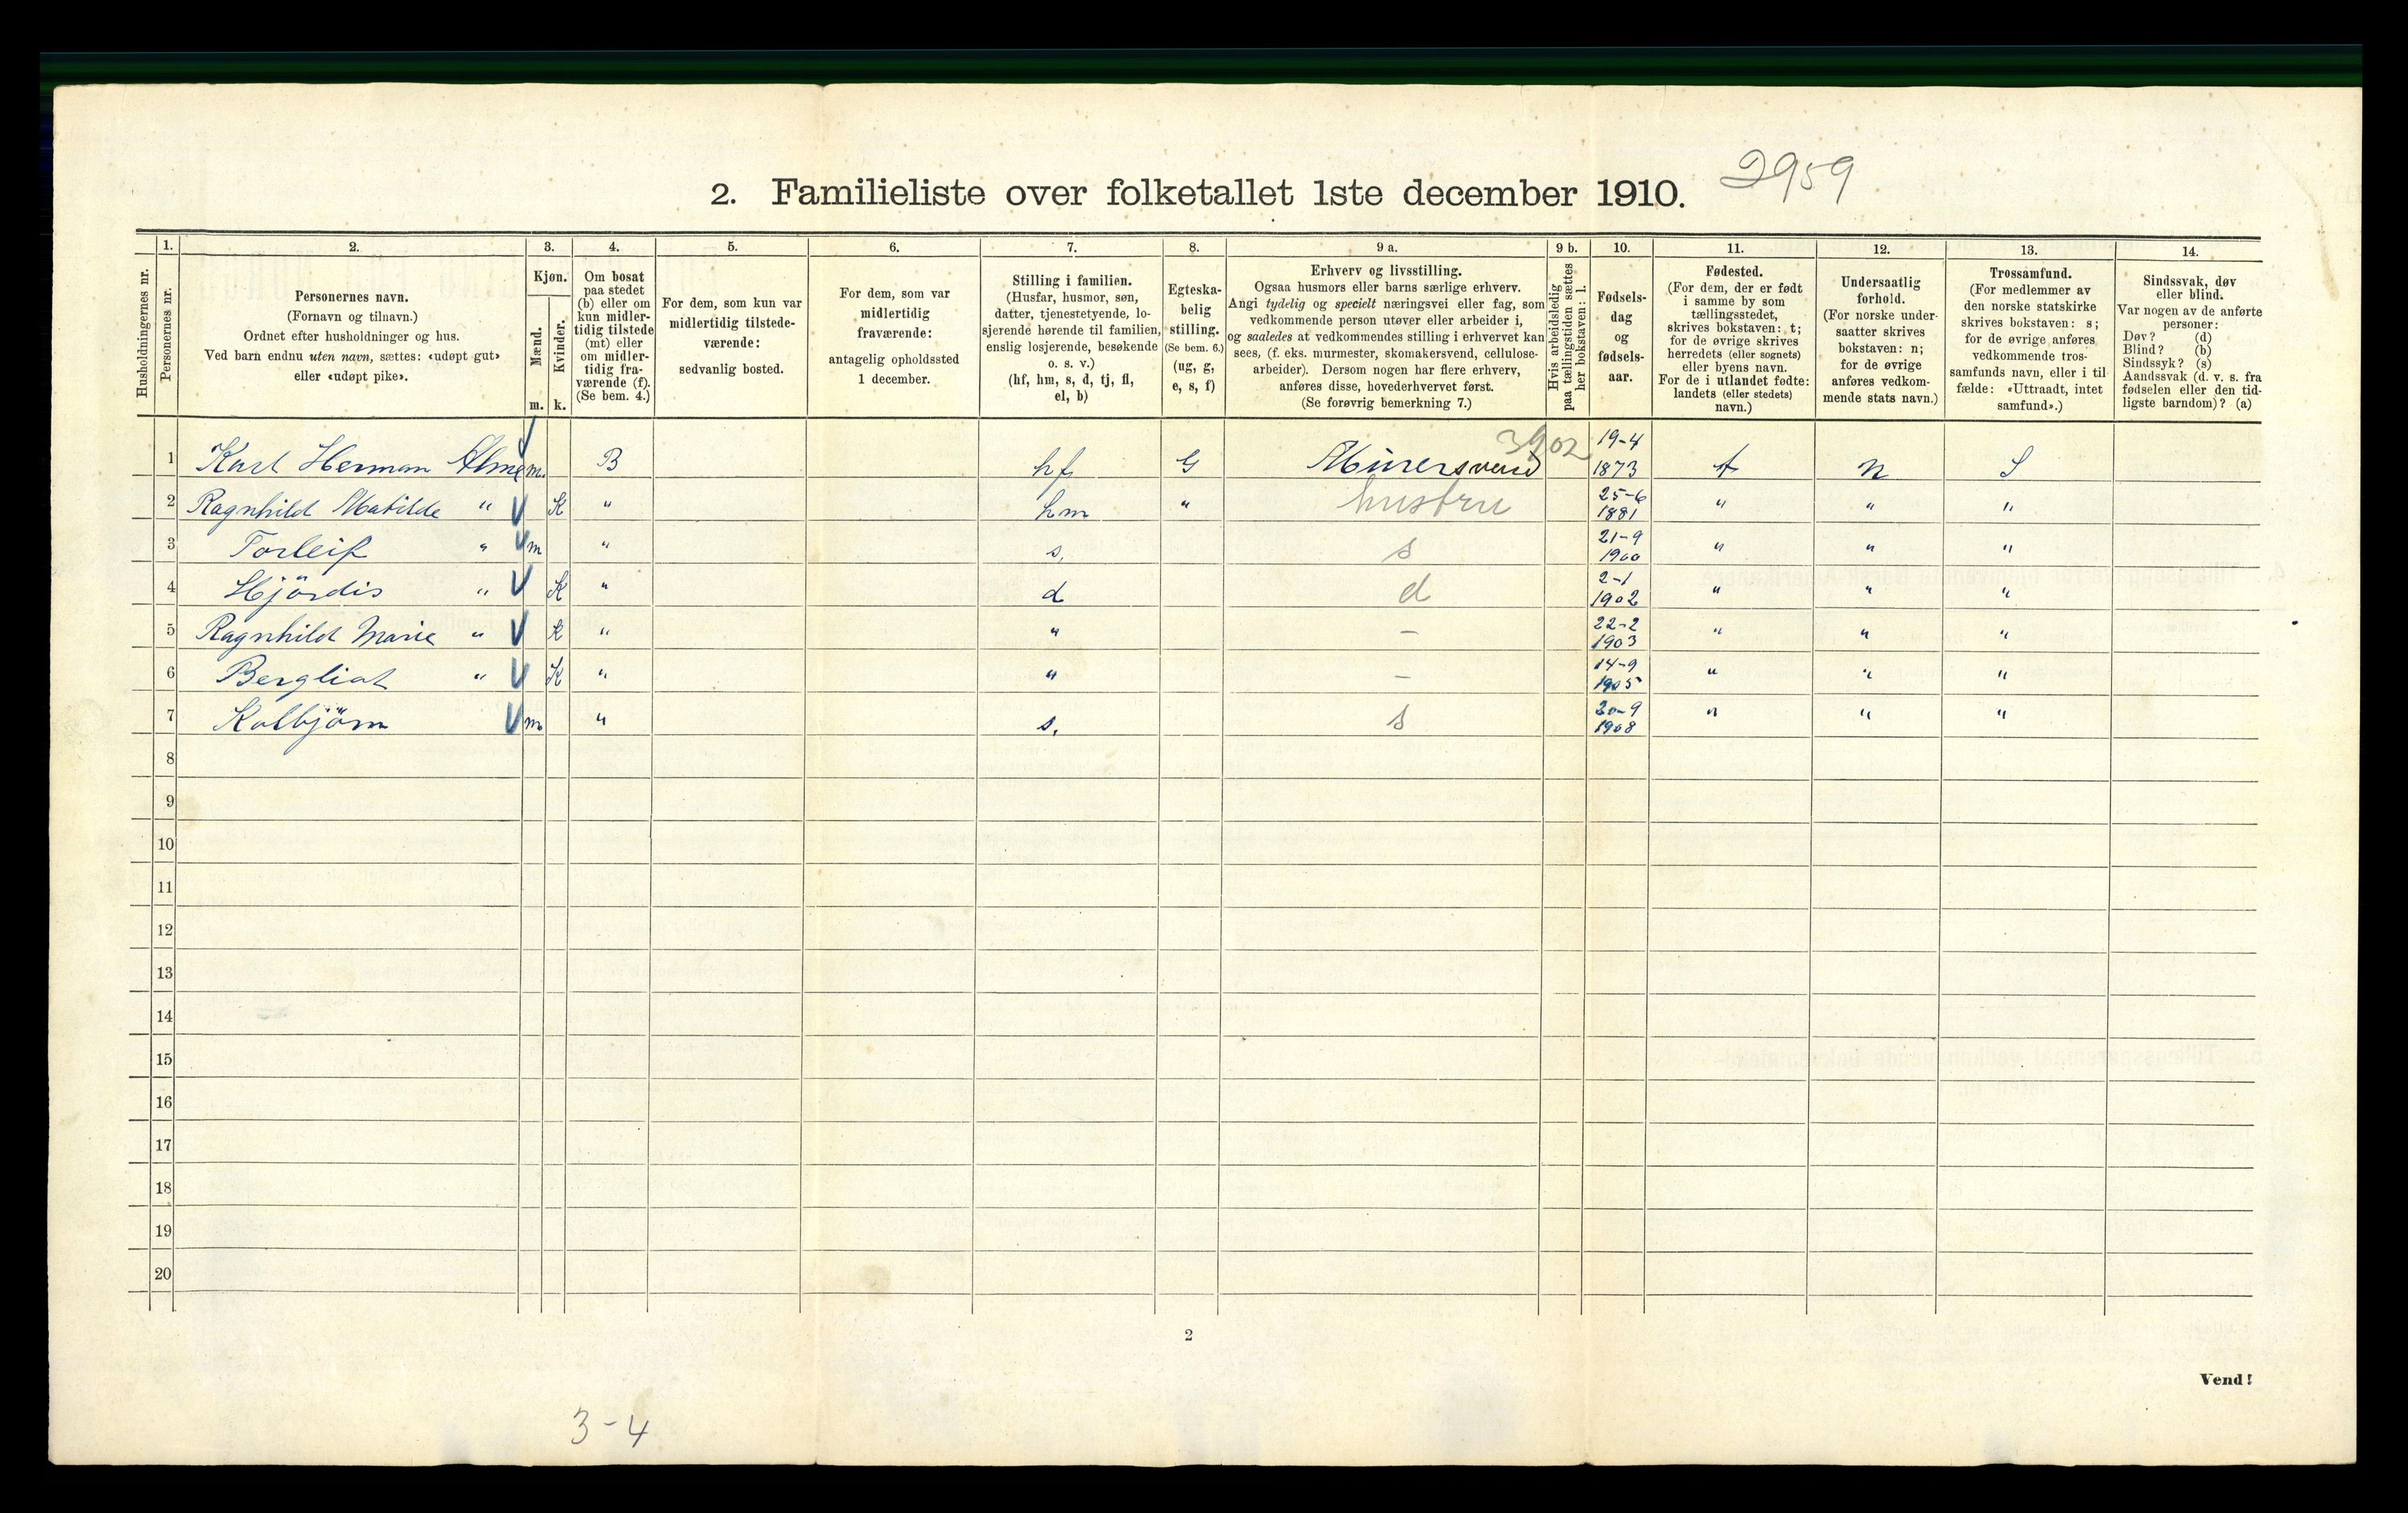 2. Familieliste over folketallet 1ste december 1910. 2959
Husholdningernes nr.
1. Personernes nr.
2. Personernes navn.
(Fornavn og tilnavn.)
Ordnet efter husholdninger og hus.
Ved barn endnu uten navn, sættes: «udøpt gut»
eller «udøpt pike».
3. Kjøn.
Mænd. m.
Kvinder. k.
4. Om bosat
paa stedet
(b) eller om
kun midler-
tidig tilstede
(mt) eller
om midler-
tidig fra-
værende (f).
(Se bem. 4.)
5. For dem, som kun var
midlertidig tilstede-
værende:
sedvanlig bosted.
6. For dem, som var
midlertidig
fraværende:
antagelig opholdssted
1 december.
7. Stilling i familien.
(Husfar, husmor, søn,
datter, tjenestetyende, lo-
sjerende hørende til familien,
enslig losjerende, besøkende
o. s. v.)
(hf, hm, s, d, tj, fl,
el, b)
8. Egteska-
belig
stilling.
(Se bem. 6.)
(ug, g,
e, s, f)
9 a. Erhverv og livsstilling.
Ogsaa husmors eller barns særlige erhverv.
Angi tydelig og specielt næringsvei eller fag, som
vedkommende person utøver eller arbeider i,
og saaledes at vedkommendes stilling i erhvervet kan
sees, (f. eks. murmester, skomakersvend, cellulose-
arbeider). Dersom nogen har flere erhverv,
anføres disse, hovederhvervet først.
(Se forøvrig bemerkning 7.)
9 b. Hvis arbeidsledig
paa tællingstiden sættes
her bokstaven: l.
10. Fødsels-
dag
og
fødsels-
aar.
11. Fødested.
(For dem, der er født
i samme by som
tællingsstedet,
skrives bokstaven: t;
for de øvrige skrives
herredets (eller sognets)
eller byens navn.
For de i utlandet fødte:
landets (eller stedets)
navn.)
12. Undersaatlig
forhold.
(For norske under-
saatter skrives
bokstaven: n;
for de øvrige
anføres vedkom-
mende stats navn.)
13. Trossamfund.
(For medlemmer av
den norske statskirke
skrives bokstaven: s;
for de øvrige anføres
vedkommende tros-
samfunds navn, eller i til-
fælde: «Uttraadt, intet
samfund».)
14. Sindssvak, døv
eller blind.
Var nogen av de anførte
personer:
Døv? (d)
Blind? (b)
Sindssyk? (s)
Aandssvak (d. v. s. fra
fødselen eller den tid-
ligste barndom)? (a)
1 Karl Herman Alme m. B hf G Murersvend 3902 19-4 1873 t n S
2 Ragnhild Matilde " K " hm " hustru 25-6 1881 " " "
3 Torleif " m " s. s 21-9 1900 " " "
4 Hjördis " K " d d 2-1 1902 " " "
5 Ragnhild Marie " K " " – 22-2 1903 " " "
6 Bergliot " K " " – 14-9 1905 " " "
7 Kolbjörn m " s. s 20-9 1908 " " "
8
9
10
11
12
13
14
15
16
17
18
19
20
2
Vend!
3-4